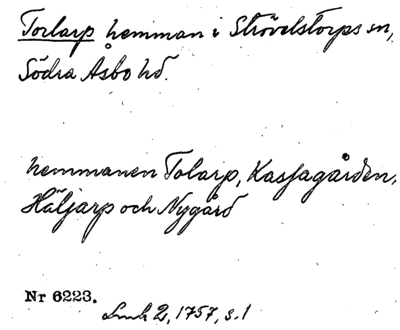 Torlarp hemman i Strövelstorps sn,
Södra Åsbo hd.
hemmanen Tolarp, Kasjagården,
Häljarp och Nygård
Nr 6223.
2, 1757, s. 1